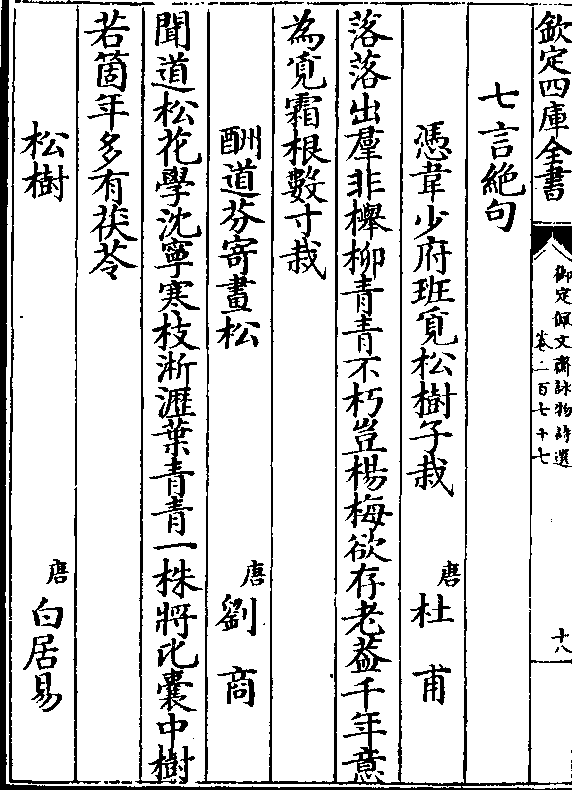 欽定四庫全書
御定佩文齋詠物詩選
卷二百七十七
十八
七言絶句
憑韋少府班覓松樹子栽
唐 杜甫
落落出羣非櫸柳青青不朽豈楊梅欲存老葢千年意
為覓霜根數寸栽
酬道芬寄畫松
唐 劉商
聞道松花學沈寧寒枝淅瀝葉青青一株將比囊中樹
若箇年多有茯苓
松樹
唐 白居易